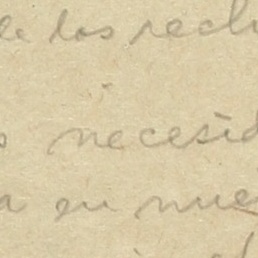 de los rech
necesid
a en nue